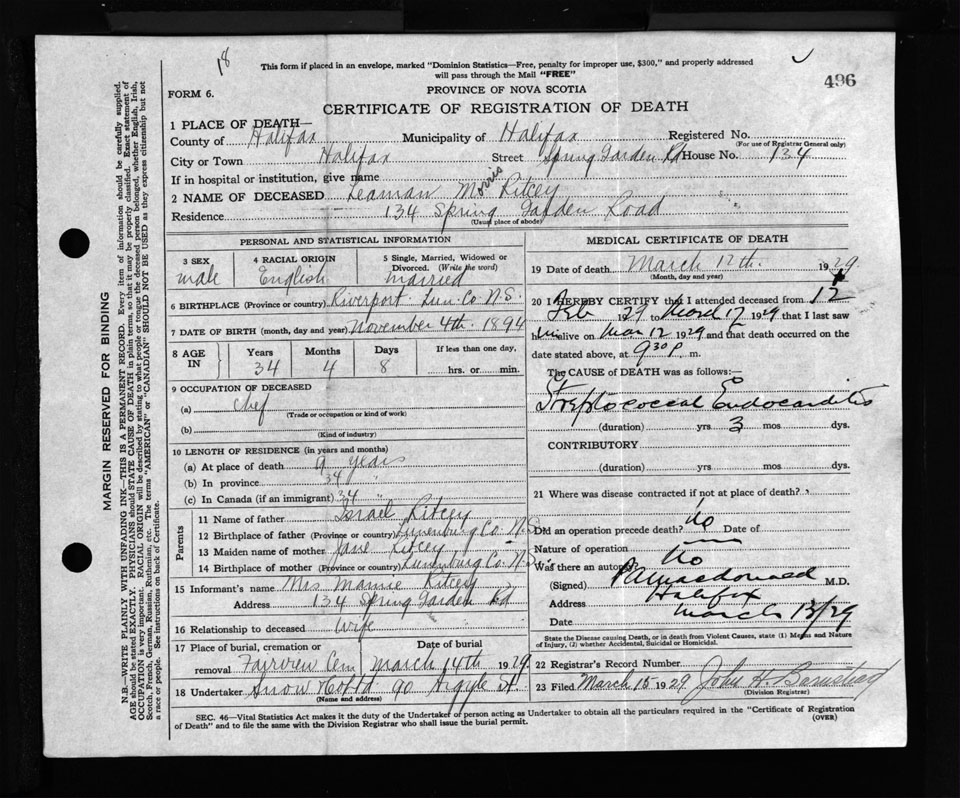 18
This form if placed in an envelope, marked "Dominion Statistics—Free, penalty for improper use, $300," and properly addressed
will pass through the Mail "FREE"
496
FORM 6.
PROVINCE OF NOVA SCOTIA
CERTIFICATE OF REGISTRATION OF DEATH
1 PLACE OF DEATH—
County of Halifax Municipality of Halifax Registered No.
(For use of Registrar General only)
City or Town Halifax Street Spring Garden Rd House No. 134
If in hospital or institution, give name
2 NAME OF DECEASED Leaman Morris Ritcey
Residence 134 Spring Garden Road
(Usual place of abode)
PERSONAL AND STATISTICAL INFORMATION
3 SEX
male
4 RACIAL ORIGIN
English
5 Single, Married, Widowed or
Divorced. (Write the word)
married
6 BIRTHPLACE (Province or country) Riverport Lun. Co N.S.
7 DATE OF BIRTH (month, day and year) November 4th. 1894
8 AGE IN
Years Months Days If less than one day,
34 4 8 hrs. or min.
9 OCCUPATION OF DECEASED
(a) chef
(Trade or occupation or kind of work)
(b)
(Kind of industry)
10 LENGTH OF RESIDENCE (in years and months)
(a) At place of death 9 years
(b) In province 34 "
(c) In Canada (if an immigrant) 34 "
Parents
11 Name of father Israel Ritcey
12 Birthplace of father (Province or country) Lunenburg Co. N.S.
13 Maiden name of mother Jane Ritcey
14 Birthplace of mother (Province or country) Lunenburg Co. N.S.
15 Informant's name Mrs Mamie Ritcey
Address 134 Spring Garden Rd
16 Relationship to deceased Wife
17 Place of burial, cremation or Date of burial
removal Fairview Cem March 14th 1929
18 Undertaker Snow & Co Ltd 90 Argyle St
(Name and address)
MEDICAL CERTIFICATE OF DEATH
19 Date of death March 12th. 1929
(Month, day and year)
20 I HEREBY CERTIFY that I attended deceased from 12
Feb 1929 to March 12 1929 that I last saw
him alive on Mar 12 1929 and that death occurred on the
date stated above, at 9 30 P. m.
The CAUSE of DEATH was as follows:—
Streptococcal Endocarditis
(duration) yrs 3 mos dys.
CONTRIBUTORY
(duration) yrs. mos. dys.
21 Where was disease contracted if not at place of death?
Did an operation precede death? No Date of
Nature of operation —
Was there an autopsy? No
(Signed) Macdonald M.D.
Address Halifax
Date March 13/29
State the Disease causing Death, or in death from Violent Causes, state (1) Means and Nature
of Injury, (2) whether Accidental, Suicidal or Homicidal.
22 Registrar's Record Number
23 Filed March 15 1929 John H. Barnstead
(Division Registrar)
SEC. 46—Vital Statistics Act makes it the duty of the Undertaker or person acting as Undertaker to obtain all the particulars required in the "Certificate of Registration
of Death" and to file the same with the Division Registrar who shall issue the burial permit.
(OVER)
MARGIN RESERVED FOR BINDING
N.B.—WRITE PLAINLY WITH UNFADING INK—THIS IS A PERMANENT RECORD. Every item of information should be carefully supplied.
AGE should be stated EXACTLY. PHYSICIANS should STATE CAUSE OF DEATH in plain terms, so that it may be properly classified. Exact statement of
OCCUPATION is very important. RACIAL ORIGIN will be described by stating to what people or tongue the deceased person belonged, whether English, Irish,
Scotch, French, German, Russian, Ruthenian, etc. The terms "AMERICAN" or "CANADIAN" SHOULD NOT BE USED as they express citizenship but not
a race or people. See instructions on back of Certificate.